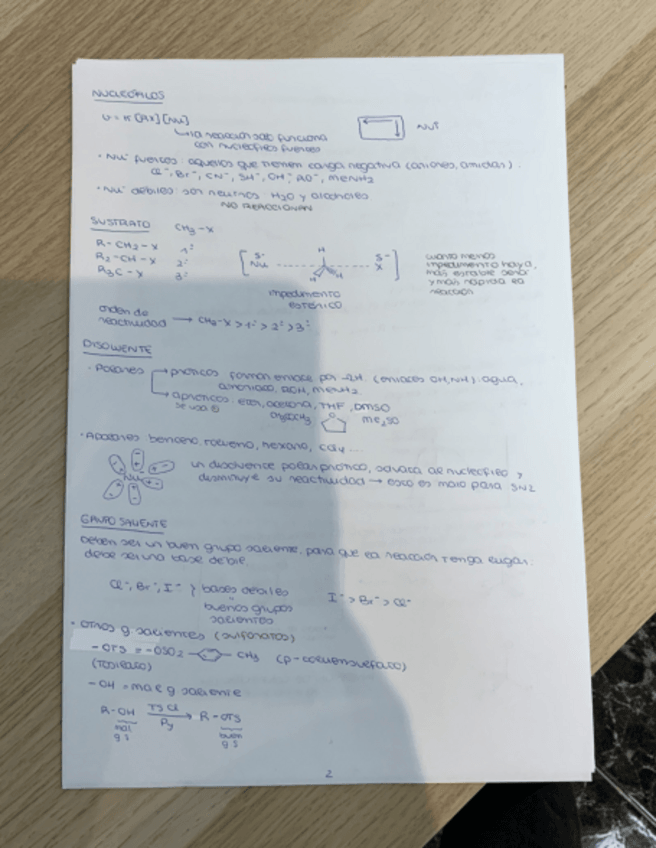 NUCLEÓFILOS
v = k [RX] [Nu]
la reacción solo funciona
con nucleófilos fuertes
Nu⁻
· Nu⁻ fuertes: aquellos que tienen carga negativa (aniones, amidas).
Cl⁻, Br⁻, CN⁻, SH⁻, OH⁻, RO⁻, MeNH₂
· Nu⁻ débiles: son neutros: H₂O y alcoholes
NO REACCIONAN
SUSTRATO CH₃-X
R-CH₂-X 1º
R₂-CH-X 2º
R₃C-X 3º
[ δ⁻ Nu H H H δ⁻ X ]
impedimento
estérico
cuanto menos
impedimento haya,
más estable será
y más rápida la
reacción
orden de
reactividad → CH₃-X > 1º > 2º > 3º
DISOLVENTE
· Polares
próticos: forman enlace por -H (enlaces OH, NH): agua,
amoniaco, ROH, MeNH₂
apróticos: éter, acetona, THF, DMSO
se usa
Me₂SO
· Apolares: benceno, tolueno, hexano, CCl₄ ...
Nu⁻
un disolvente polar prótico, solvata al nucleófilo y
disminuye su reactividad → esto es malo para SN2
GRUPO SALIENTE
Deben ser un buen grupo saliente, para que la reacción tenga lugar.
debe ser una base débil.
Cl⁻, Br⁻, I⁻ } bases débiles
buenos grupos
salientes
I⁻ > Br⁻ > Cl⁻
· Otros g. salientes (sulfonatos)
-OTS = -OSO₂- -CH₃ (p-toluensulfato)
(Tosilato)
-OH = mal g saliente
R-OH TsCl Py → R-OTS
mal
g s
buen
g s
2